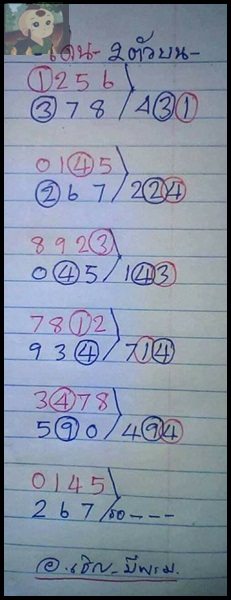 -เด่น-2ตัวบน-
1256
378/431
0145
267/224
8923
045/143
7812
934/714
3478
590/494
0145
267/รอ---